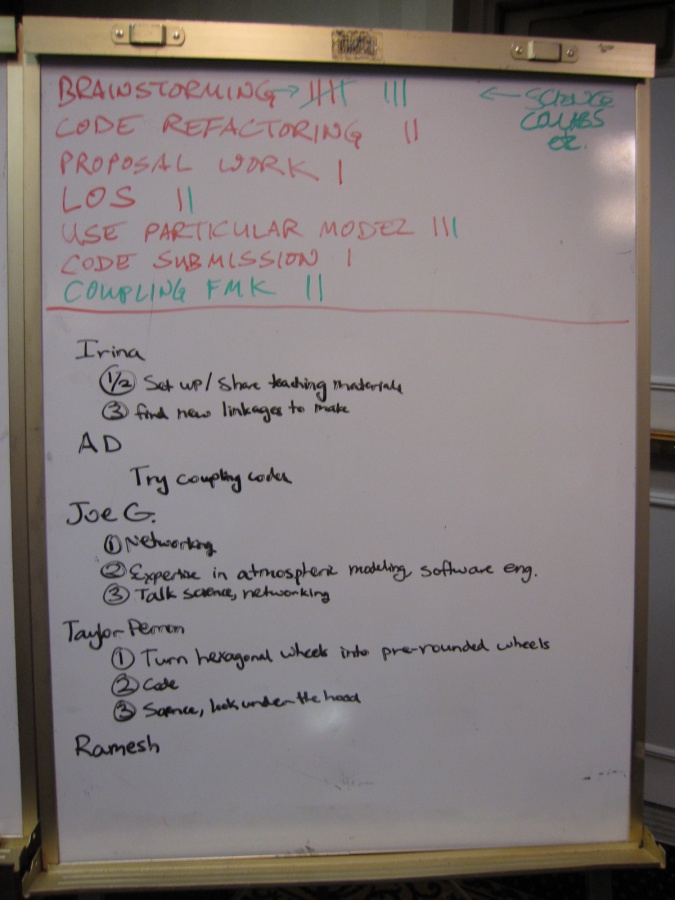 BRAINSTORMING → |||| |||
← SCIENCE
COLLABS
etc.
CODE REFACTORING ||
PROPOSAL WORK |
LOS ||
USE PARTICULAR MODEL |||
CODE SUBMISSION |
COUPLING FMK ||
Irina
1/2 Set up/share teaching materials
3 find new linkages to make
AD
Try coupling codes
Joe G.
1 Networking
2 Expertise in atmospheric modeling, software eng.
3 Talk science, networking
Taylor Perron
1 Turn hexagonal wheels into pre-rounded wheels
2 Code
3 Science, look under the hood
Ramesh